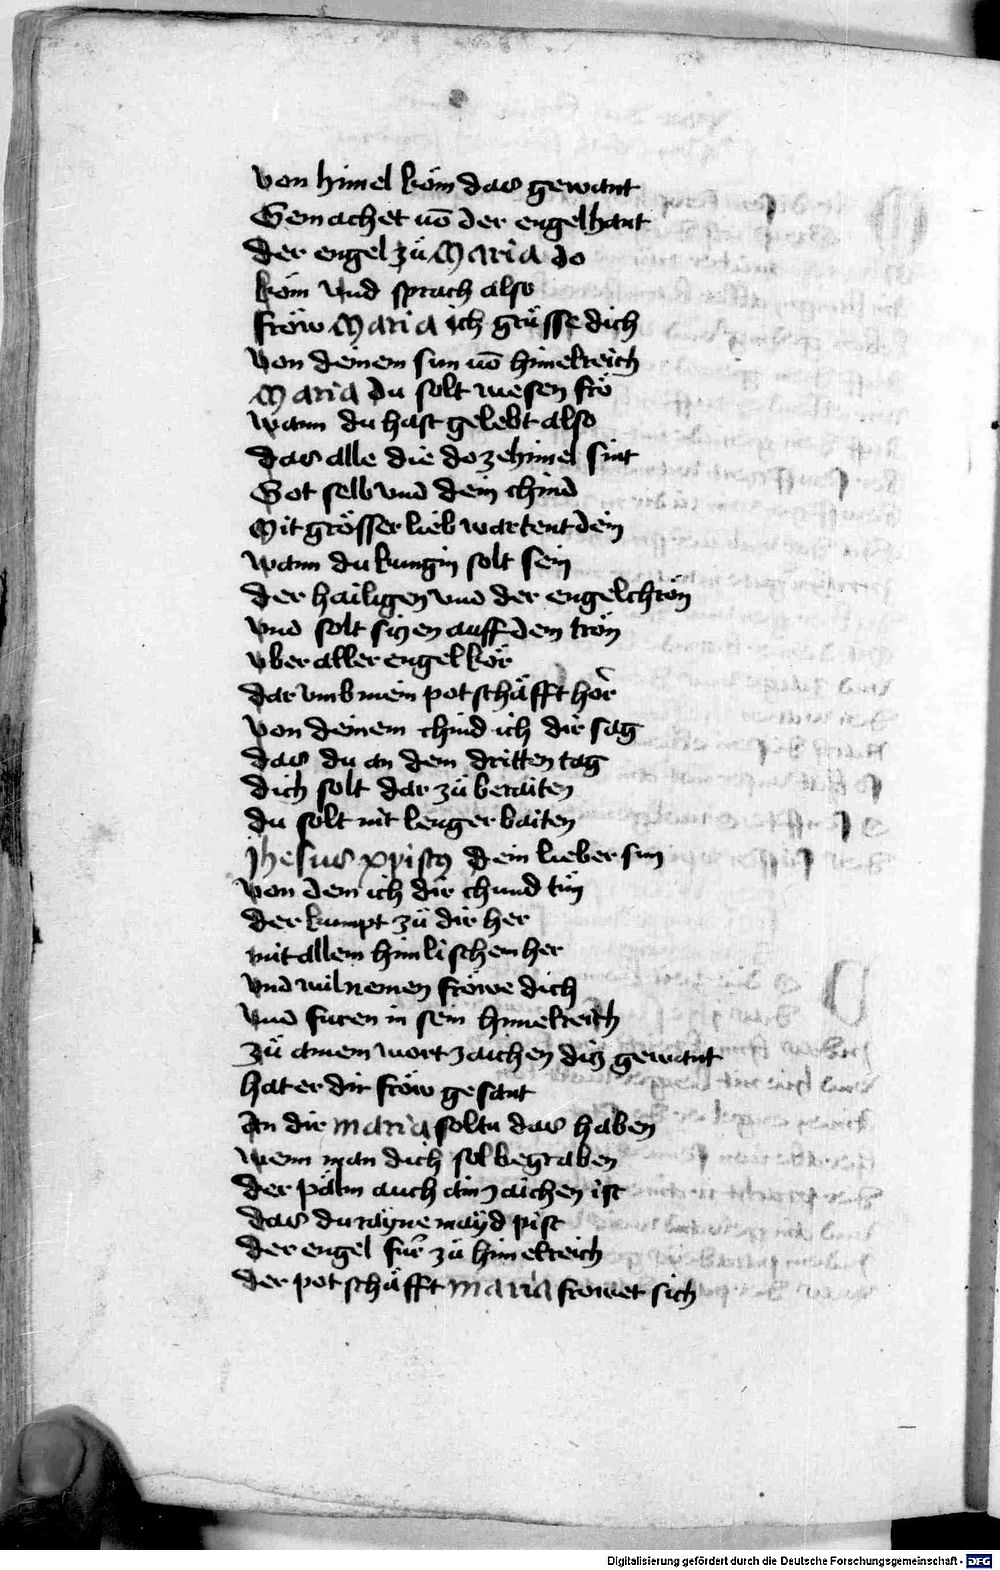 von himel köm das gewant
Gemachet uō der engelhant
der engel zů Maria do
köm vnd sprach also
fröw Maria ich grüsse dich
von deinem sun uō himelreich
Maria du solt wesen frö
wann du hast gelebt also
das alle die do ze himel sint
Got selb vnd dein chind
Mit grösser lieb wartent dein
wann du kungin solt sein
der hailigen vnd der engel chrön
vnd solt siczen auff dem trön
vber aller engel kör
dar vmb mein potschäfft hör
von deinem chind ich dir sag
das du an dem dritten tag
dich solt dar zů beraiten
du solt nit lenger baiten
jhesus xpistꝰ dein lieber sun
von dem ich dir chund tün
der kumpt zů dir her
mit allem himlischem her
vnd wil nemen fröwe dich
vnd furen in sein himelreich
zů ainem wortzaichen dicz gewant
hat er dir fröw gesant
An dir maria soltu das haben
wenn man dich sol begraben
der pälm auch ain zaichen ist
das du rayne mayd pist
der engel für zů himelreich
der potschäfft maria frowet sich
Digitalisierung gefördert durch die Deutsche Forschungsgemeinschaft - DFG